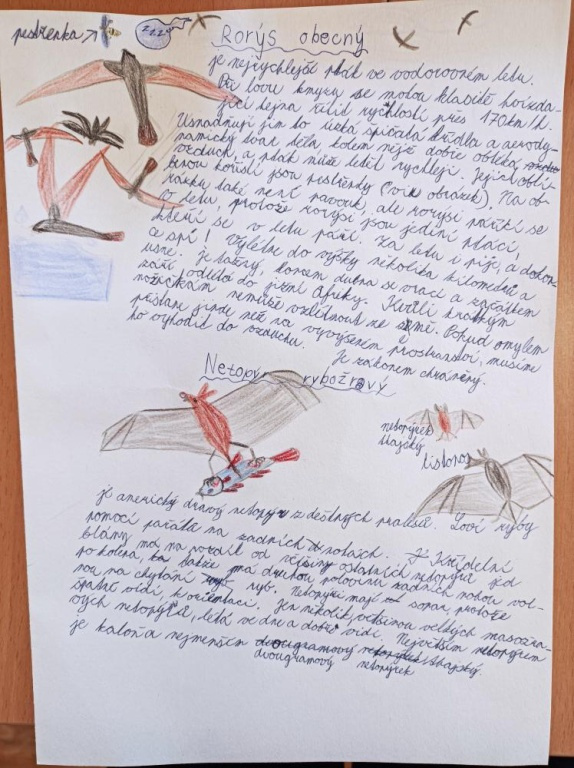 pestřenka
Rorýs obecný
je nejrychlejší pták ve vodorovném letu.
Při lovu hmyzu se mohou hlasitě hvízda-
jící hejna řítit rychlostí přes 170km/h.
Usnadňují jim to úzká špičatá křídla a aerody-
namický tvar těla, kolem nějž dobře obtéká
vzduch, a pták může letět rychleji. Její obli-
benou kořistí jsou pestřenky (viz obrázek). Na ob-
rázku také není pavouk, ale rorýsi pářící se
v letu, protože rorýsi jsou jediní ptáci,
kteří se v letu páří. Za letu i pije, a dokon-
ce spí! Vylétne do výšky několika kilometrů a
usne. Je tažný, koncem dubna se vrací a začátkem
září odlétá do jižní Afriky. Kvůli krátkým
nožičkám nemůže vzlétnout ze země. Pokud omylem
přistane jinde než na vyvýšeném prostranství, musíme
ho vyhodit do vzduchu.
Je zákonem chráněný.
Netopýr rybožravý
netopýrek
thajský
listonos
je americký dravý netopýr z deštných pralesů. Loví ryby
pomocí pařátů na zadních nohách. Křídelní
blány má na rozdíl od většiny ostatních netopýrů jd
po kolena, takže má druhou polovinu zadních nohou vol-
nou na chytání ryb. Netopýři mají sonar, protože
špatně vidí, k orientaci. Jen několik, většinou velkých masožra-
vých netopýrů, létá ve dne a dobře vidí. Největším netopýrem
je kaloň a nejmenším dvougramový netopýrek thajský.
dvougramový netopýrek